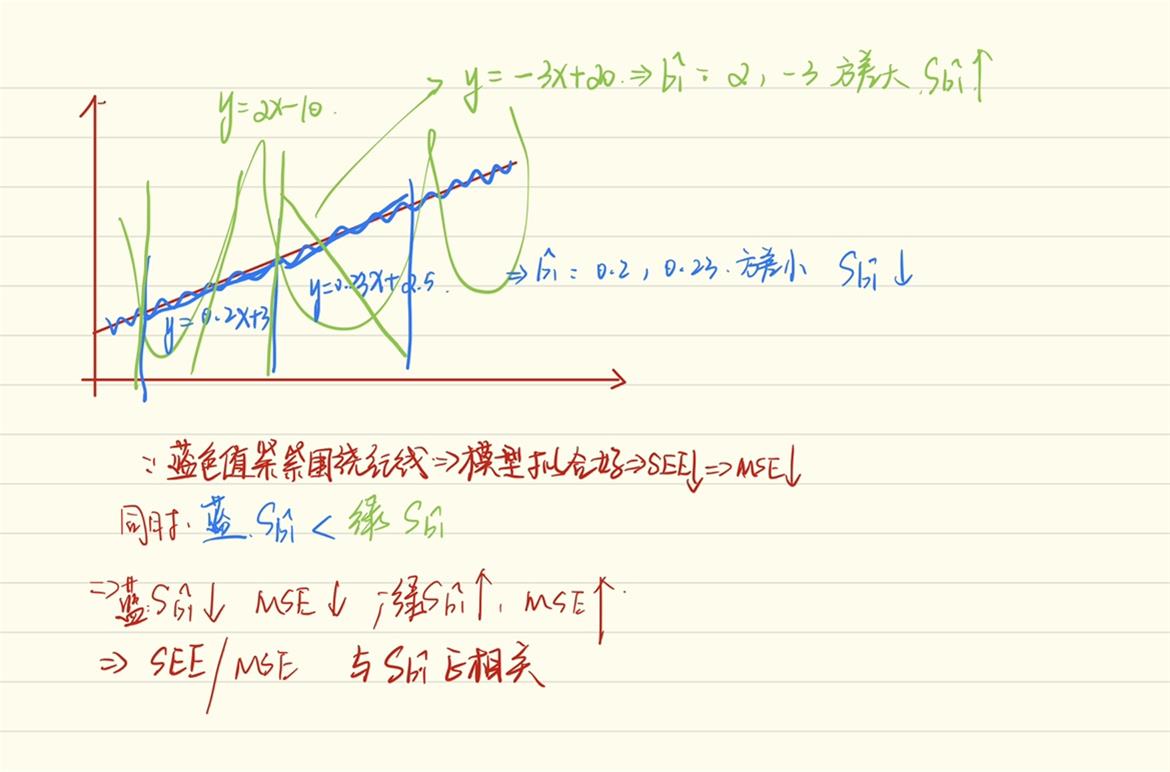 y=-3x+20 ⇒ b̂₁: 2, -3 方差大 Sb̂₁↑
y=2x-10
y=0.2x+3
y=0.23x+2.5
⇒ b̂₁: 0.2, 0.23. 方差小 Sb̂₁↓
∵ 蓝色值紧紧围绕红线⇒模型拟合好⇒SEE↓⇒MSE↓
同时: 蓝 Sb̂₁ < 绿 Sb̂₁
⇒蓝: Sb̂₁↓ MSE↓ ; 绿Sb̂₁↑, MSE↑
⇒ SEE/MSE 与 Sb̂₁ 正相关